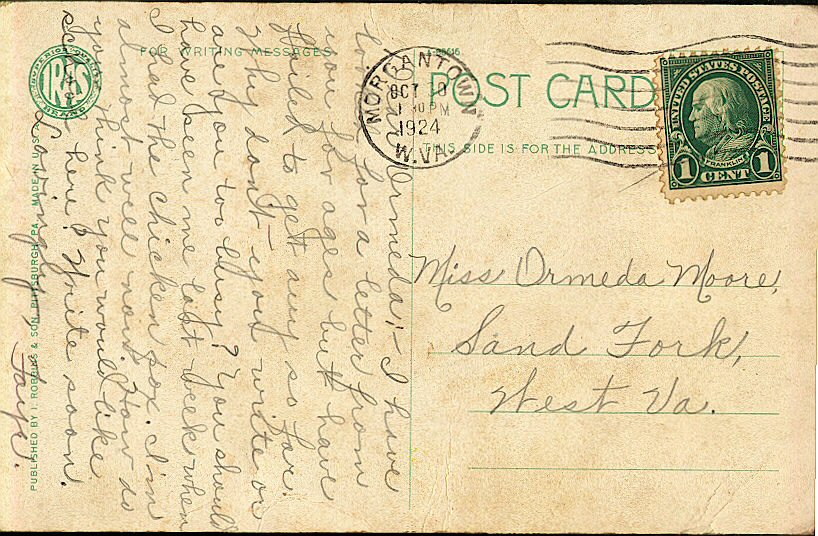 FOR WRITING MESSAGES
POST CARD
THIS SIDE IS FOR THE ADDRESS
MORGANTOWN
OCT
PM
1924
W.VA.
UNITED STATES POSTAGE
FRANKLIN
1 CENT 1
Miss Ormeda Moore,
Sand Fork,
West Va.
Ormeda;- I have
for a letter from
you for ages but have
failed to get any so far.
Why don't you write or
are you too busy? You should
have seen me last week when
I had the chicken pox. I'm
almost well now. How do
you think you would like
here? Write soon.
Lovingly,
Faye.
PUBLISHED BY I. ROBBINS & SON, PITTSBURGH, PA. MADE IN U.S.A.